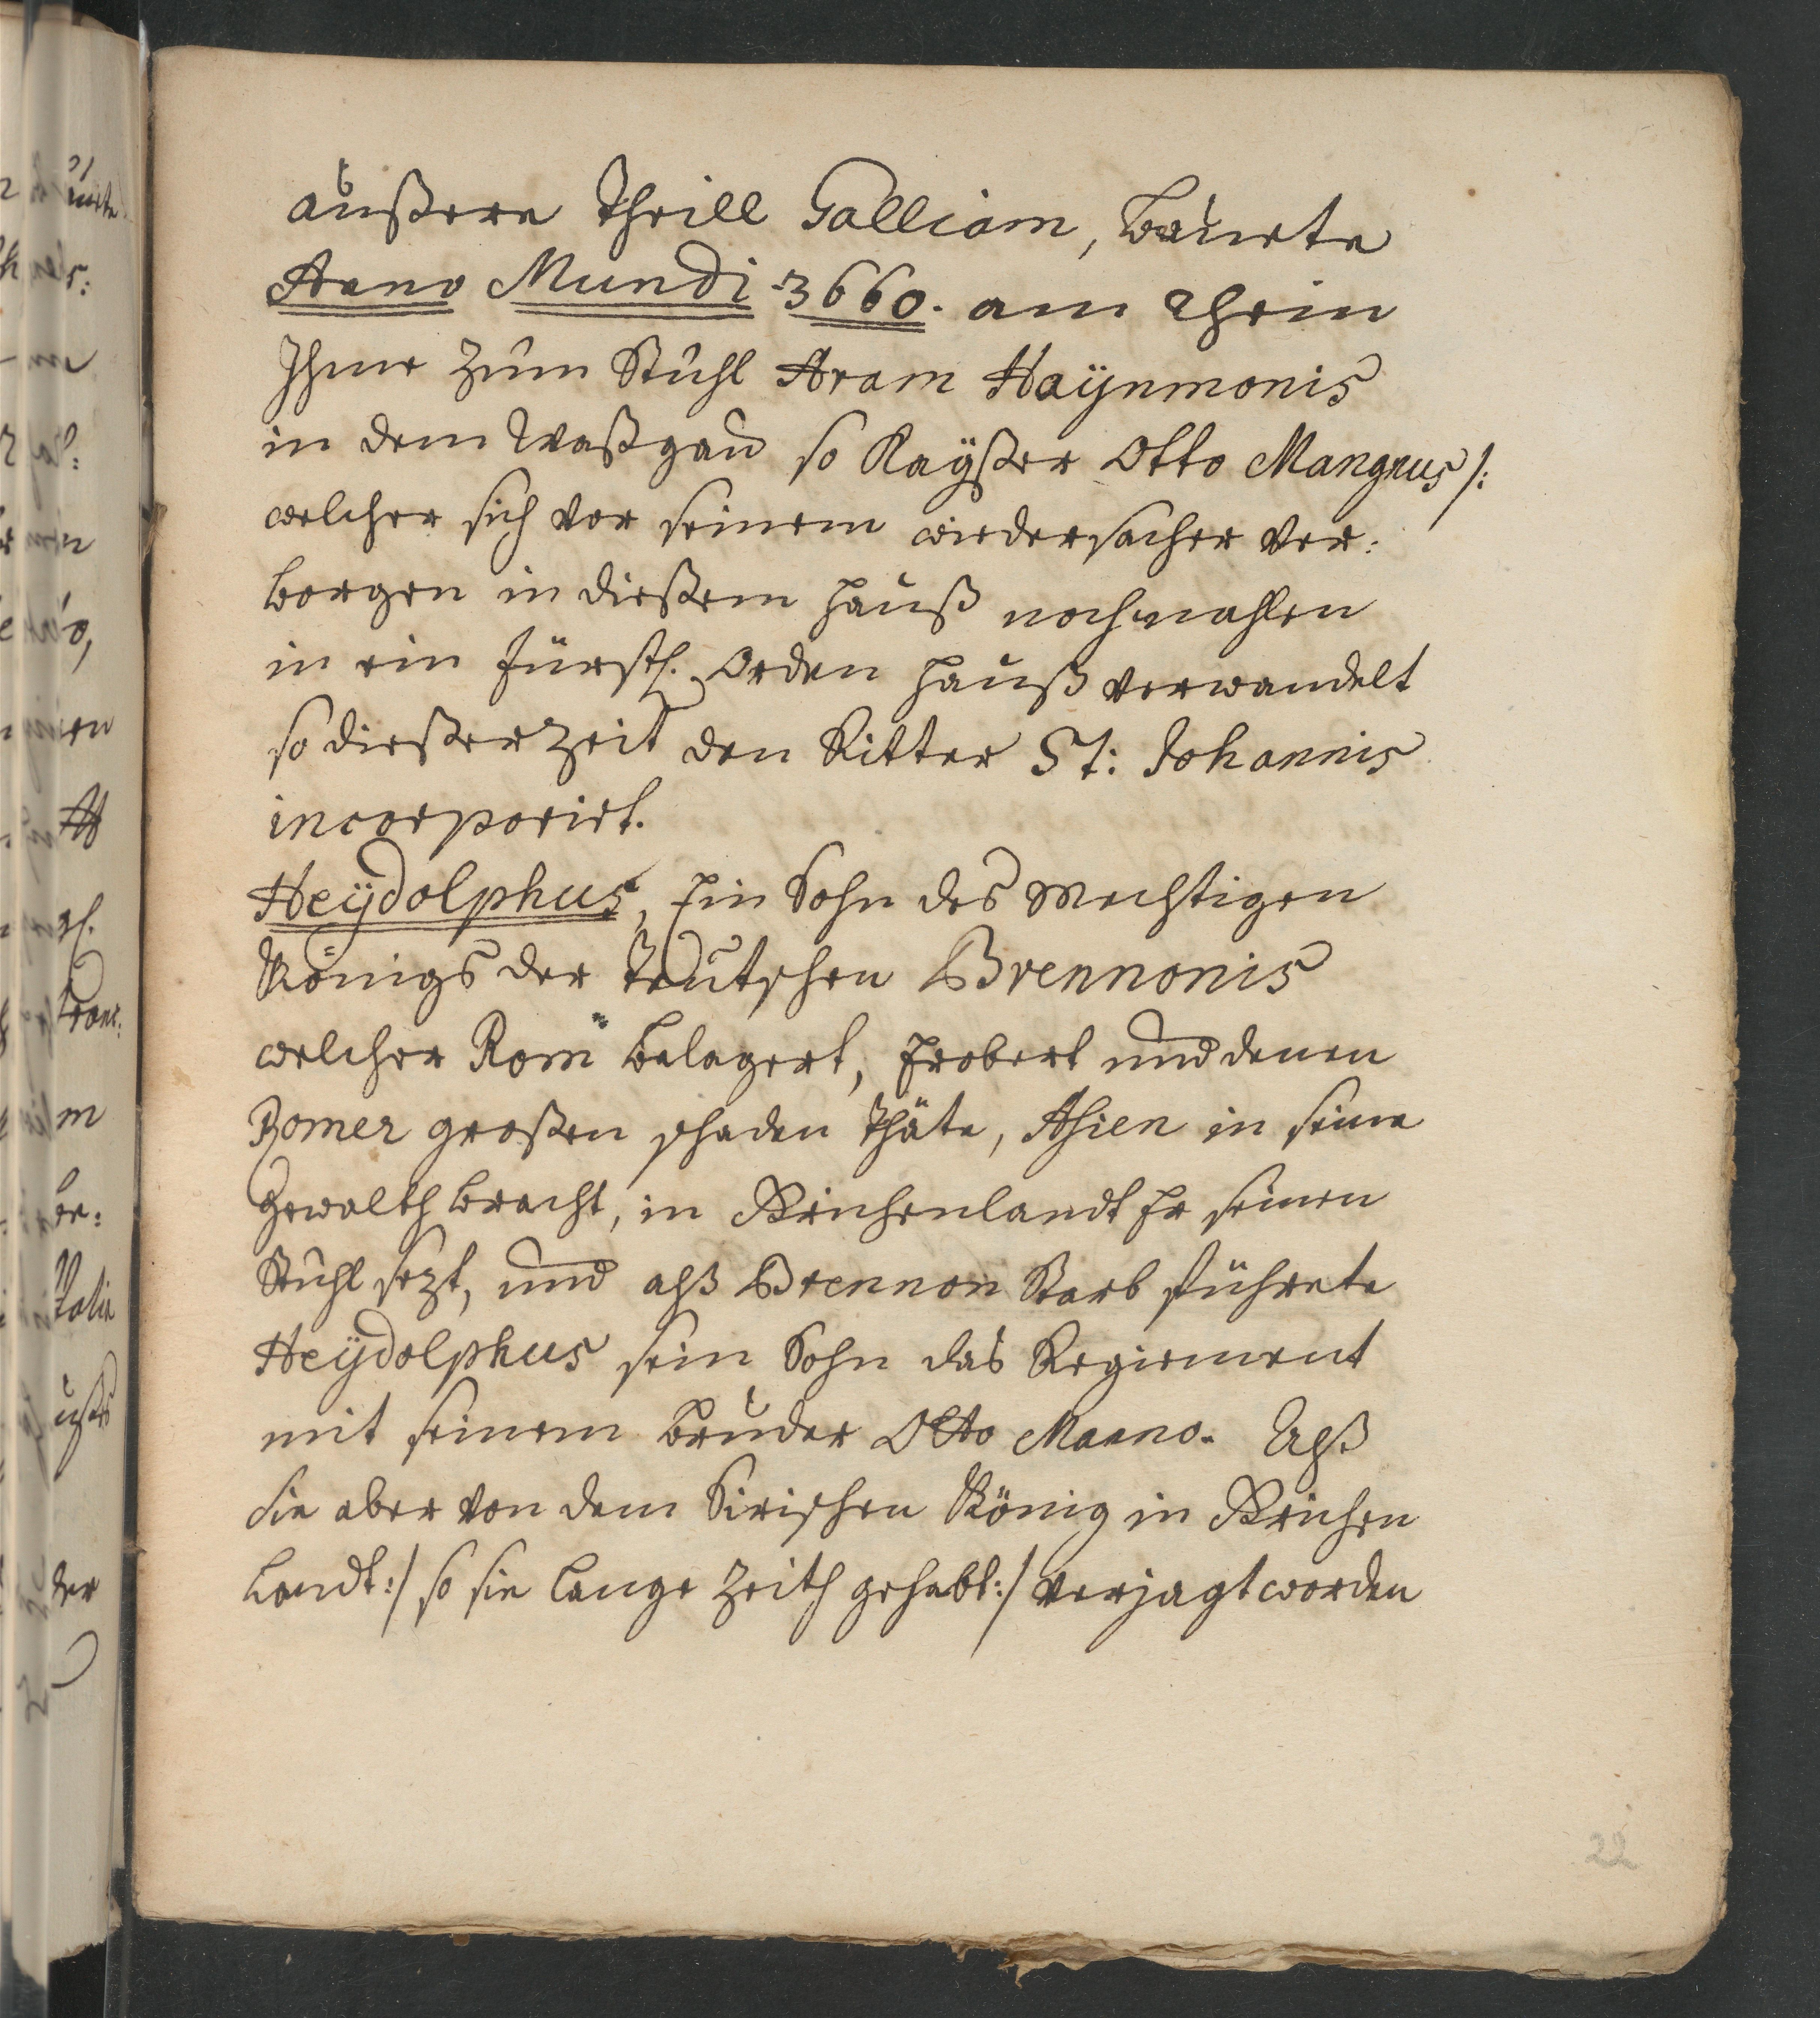 äußere Theill Galliam, bauete
Anno Mundi 3660. am Rhein
Ihme zum Stuhl Aram Haÿnmonis
in dem Waßgau so Kaÿßer Otto Mangnus /:
welcher sich vor seinem wiedersacher ver:
borgen in dießem Hauß nochmahlen
in ein Fürstl. Orden Hauß verwandelt
so dießer Zeit den Ritter St: Johannis
incorporirt.
Heÿdolphus, Ein Sohn des Mechtigen
Königs der Teutschen Brennonis
welcher Rom belagert, Erobert und denen
Romer großen schaden thäte, Asien in seine
Gewalth bracht, in Krichenlandt Er seinen
Stuhl sezt, und alß Brennon Starb führete
Heÿdolphus sein Sohn das Regiement
mit seinem Bruder Otto Manno. Alß
sie aber von dem Sirischen König in Krichen
Landt :/ so sie lange Zeith gehabt :/ verjagt worden
22